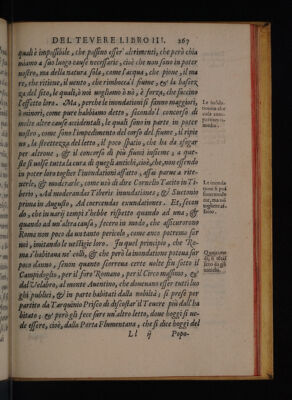 DEL TEVERE LIBRO III. 267
quali è impossibile, che possino esser' altrimenti, che però chia
miamo a suo luogo cause necessarie, cioè che non sono in poter
nostro, ma della natura sola, come l'acqua, che pioue, il ma
re, che ritiene, il uento, che rimbocca il fiume, & la bassez
za del sito, le quali, ò noi uogliamo ò nò, è forza, che faccino
l'effetto loro. Ma, perche le inondationi si fanno maggiori,
ò minori, come pure habbiamo detto, secondo l'concorso di
molte altre cause accidentali, le quali sono in parte in poter
nostro, come sono l'impedimento del corso del fiume, il ripie
no, la strettezza del letto, il poco spatio, che ha da sfogar
per altroue, & il concorso di più fiumi insieme; a que-
ste si uolse tutta la cura di quegli antichi, cioè, che, non essendo
in poter loro toglier l'inondationi affatto, assai parue a rite-
nerle, & moderarle, come uuol dir Cornelio Tacito in Ti-
berio, ad moderandas Tiberis inundationes, & Suetonio
prima in Augusto, Ad coercendas exundationes. Et, secon
do, che in uarij tempi s'hebbe rispetto quando ad una, &
quando ad un'altra causa, fecero in modo, che assicurarono
Roma non poco da un tanto pericolo, come anco potremo far
noi, imitando le uestigie loro. In quel principio, che Ro-
ma s'habitaua ne' colli, & che però la inondatione poteua far
poco danno, senon quanto scorreua certe uolte sin sotto il
Campidoglio, per il foro Romano, per il Circo massimo, &
dal Velabro, al monte Auentino, che doueuano esser tutti luo
ghi publici, & in parte habitati dalla nobiltà; si prese per
partito da Tarquinio Prisco di discostar il Teuere più dall'ha
bitato; & però gli fece fare un'altro letto, doue hoggi si ue-
de essere, cioè, dalla Porta Flumentana, che si dice hoggi del
Ll ij Popo-
Le inonda-
tioni si
moderare
ne, ma nò
toglier